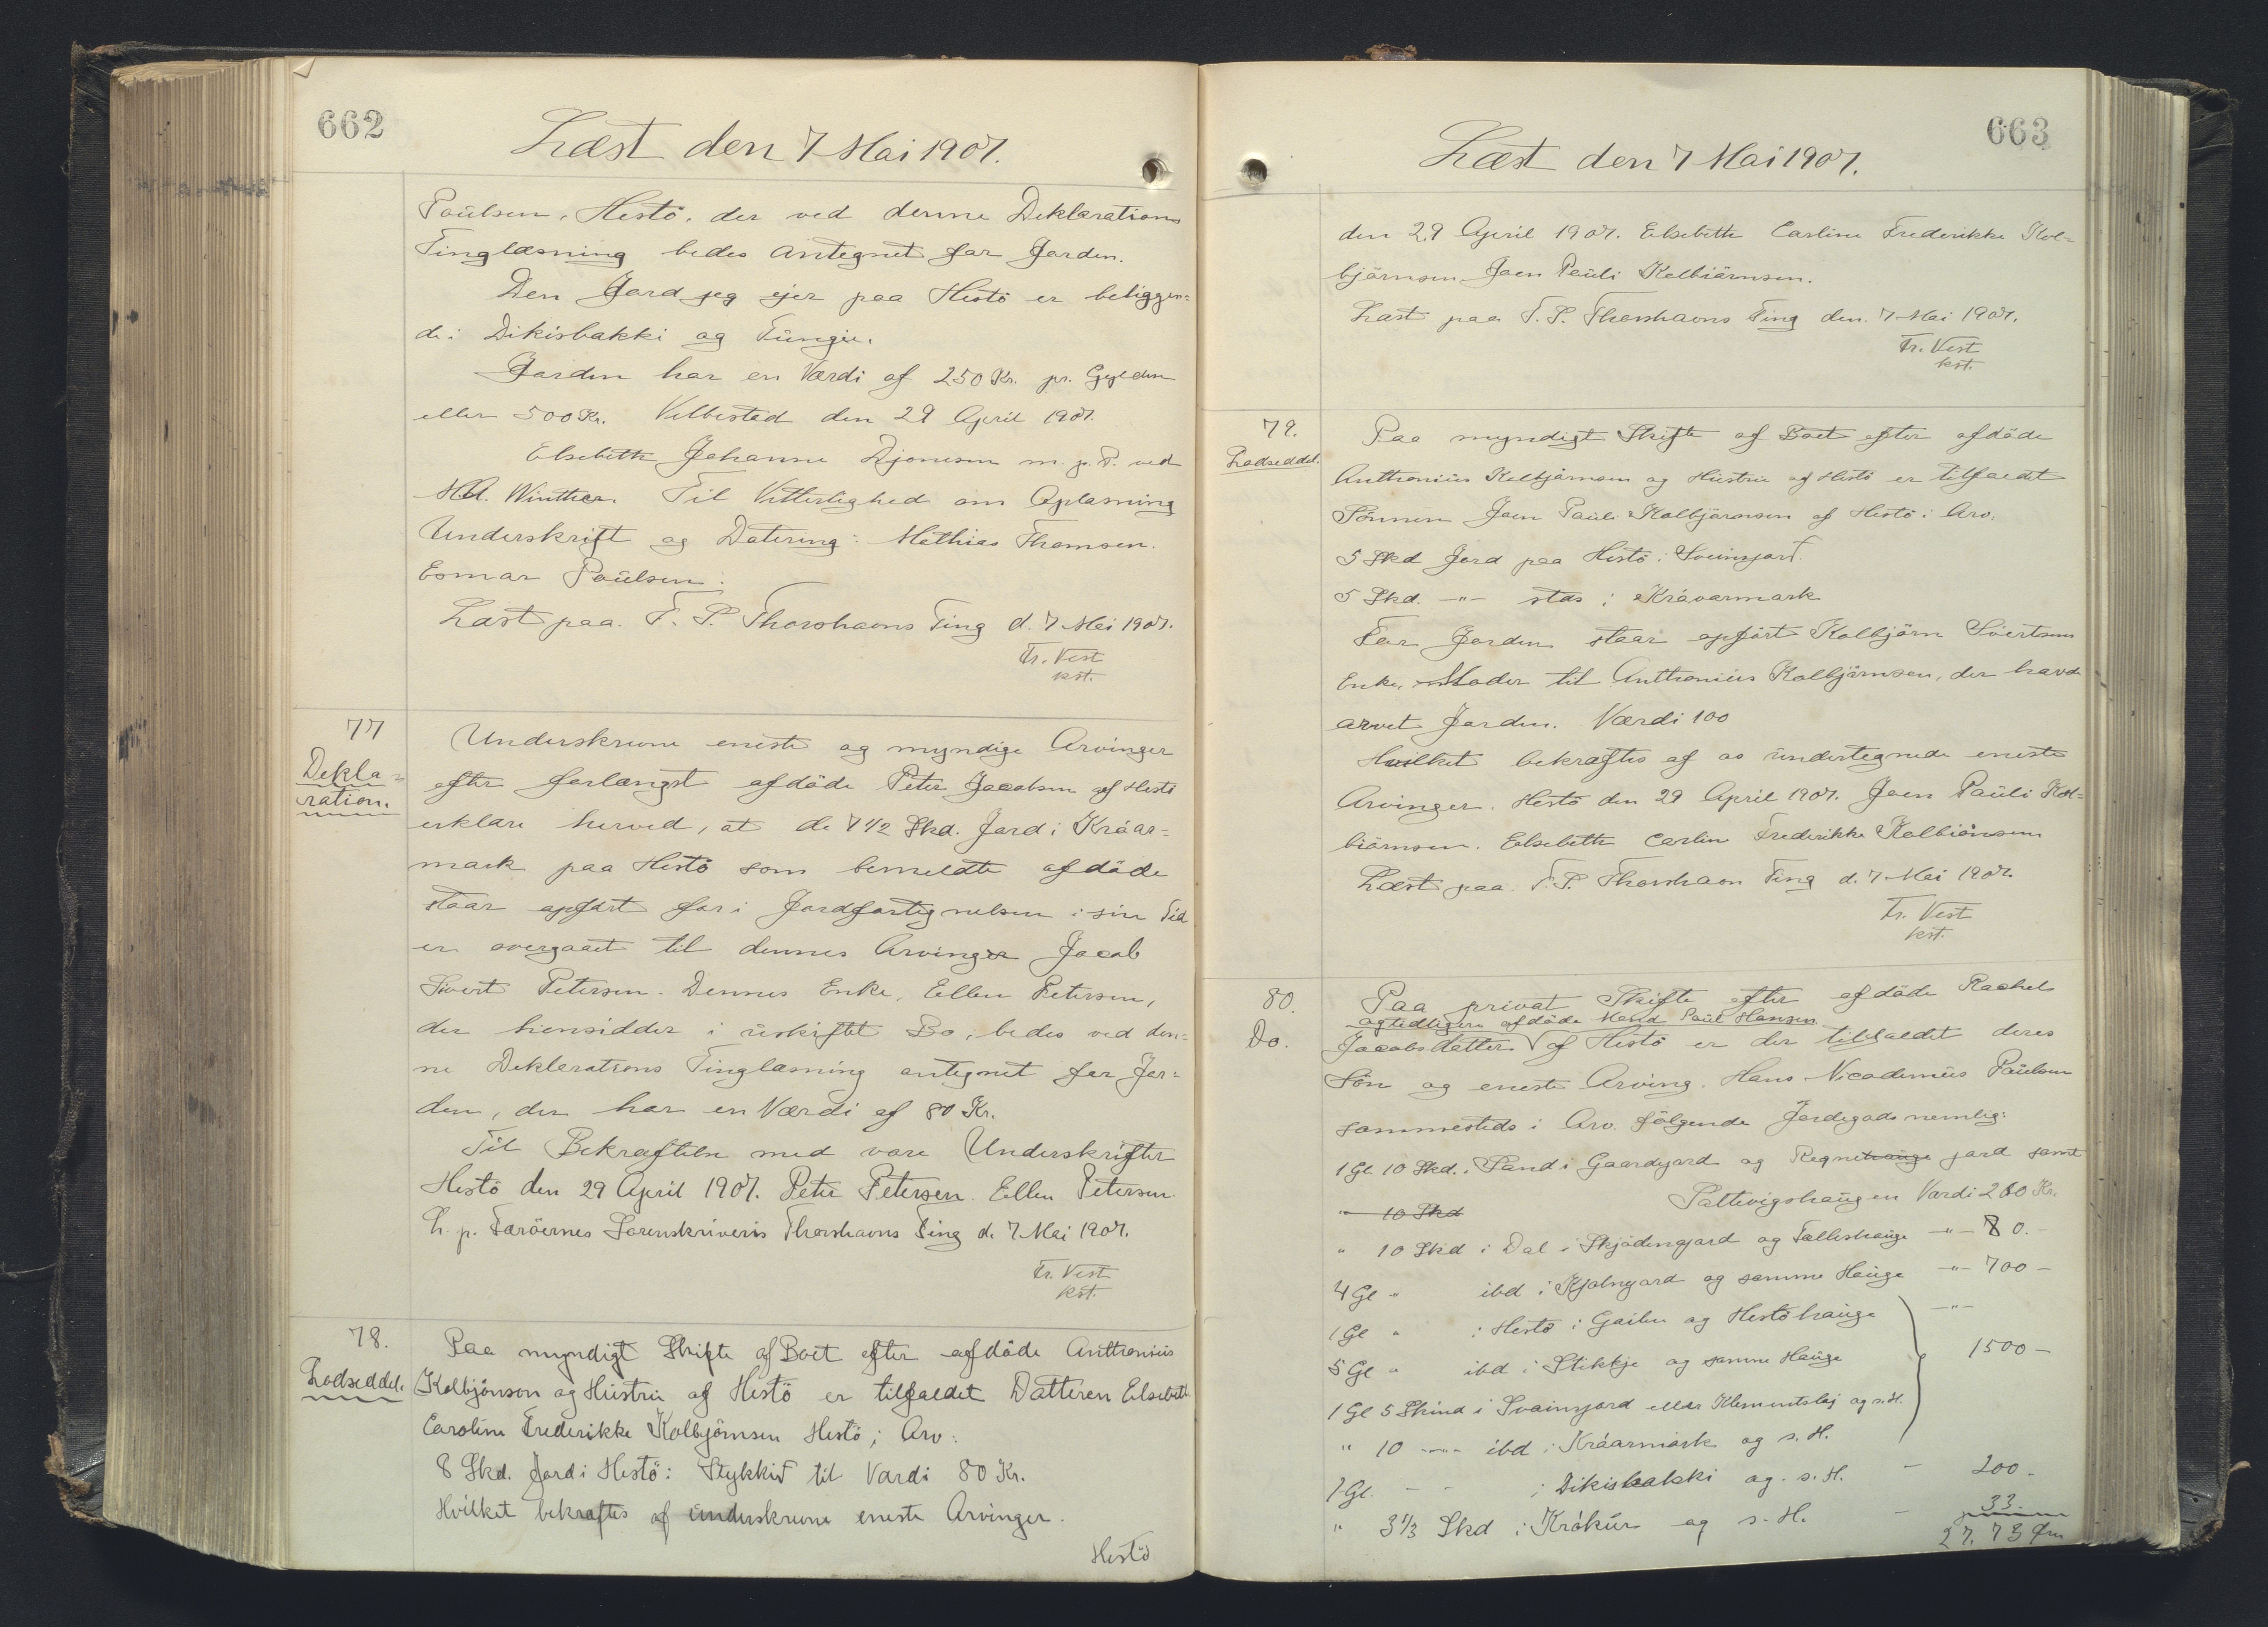 662
Læst den 7 Mai 1907.
Paulsen, Hestö, der ved denne Deklarations
Tinglæsning bedes antegnet for Jorden.
Den Jord jeg ejer paa Hestö er beliggen=
de i Dikisbakki og Tungu.
Jorden har en Værdi af 250 Kr. pr. Gylden
eller 500 Kr. Velbestad den 29 April 1907.
Elsebeth Johanne Djonesen m. p. P. ved
Winther. Til Vitterlighed om Oplæsning
Underskrift og Datering: Mathias Thomsen.
Esmar Paulsen.
Læst paa F. S. Thorshavns Ting d. 7 Mai 1907.
Fr. Vest
kst.
77
Dekla=
ration.
Underskrevne eneste og myndige Arvinger
efter forlængst afdöde Peter Jacobsen af Hestö
erklære herved, at de 7 1/2 Skd. Jord i Kráar=
mark paa Hestö som bemeldte afdöde
staar opfört for i Jordfortegnelsen i sin Tid
er overgaaet til dennes Arvinger Jacob
Sivert Petersen. Dennes Enke, Ellen Petersen,
der hensidder i uskiftet Bo, bedes ved den=
ne Deklarations Tinglæsning antegnet for Jor=
den, der har en Værdi af 80 Kr.
Til Bekræftelse med vore Underskrifter
Hestö den 29 April 1907. Peter Petersen. Ellen Petersen.
L. p. Færöernes Sorenskriveris Thorshavns Ting d. 7 Mai 1907.
Fr. Vest
kst.
78.
Lodseddel.
Paa myndigt Skifte af Boet efter afdöde Anthonius
Kolbjönson og Hustru af Hestö er tilfaldet Datteren Elsebeth
Caroline Frederikke Kolbjörnsen Hestö i Arv:
8 Skd. Jord i Hestö: Stykkid til Værdi 80 Kr.
Hvilket bekræftes af underskrevne eneste Arvinger.
Hestö
663
Læst den 7 Mai 1907.
den 29 April 1907. Elsebeth Carline Frederikke Kol=
björnsen Joen Pauli Kolbiörnsen.
Læst paa F. S. Thorshavns Ting den 7 Mai 1907.
Fr. Vest
kst.
79.
Lodseddel.
Paa myndigt Skifte af Boet efter afdöde
Anthonius Kolbjörnsen og Hustru af Hestö er tilfaldet
Sönnen Joen Pauli Kolbjörnsen af Hestö i Arv:
5 Skd Jord paa Hestö i Sveinsjord.
5 Skd. -"- stds i Krávarmark
For Jorden staar opfört Kolbjörn Sivertsens
Enke, Moder til Anthonius Kolbjörnsen, der havde
arvet Jorden. Værdi 100
Hvilket bekræftes af os undertegnede eneste
Arvinger. Hestö den 29 April 1907. Joen Pauli Kol=
biörnsen. Elsebeth Carline Frederikke Kolbiörnsen
Læst paa F. S. Thorshavn Ting d. 7 Mai 1907.
Fr. Vest
kst.
80.
Do.
Paa privat Skifte efter afdöde Rachel
og tidligere afdöde Mand Paul Hansen
Jacobsdatter af Hestö er der tilfaldet deres
Sön og eneste Arving, Hans Nicodemus Paulsen
sammesteds i Arv følgende Jordegods nemlig:
1 Gl. 10 Skd. i Sand i Gaardejord og Regnehauge jord samt
" 10 Skd Sættevigshaugen Værdi 260 Kr.
" 10 Skd i Dal i Skjödengjord og Fælleshauge -"- 80.-
4 Gl " ibd i Kjolngjord og samme Hauge -"- 700 -
1 Gl " i Hestö i Gailen og Hestöhauge -"-
5 Gl " ibd i Stikkje og samme Hauge 1500 -
1 Gl 5 Skind i Svainsjord eller Klementslaj og s. H.
" 10 -"- ibd i Kráarmark og s. H.
1 Gl. - - i Dikisbakki og s. H. - 200 -
" 3 1/3 Skd i Krókur og s. H. - 33 -
27,73 Øre